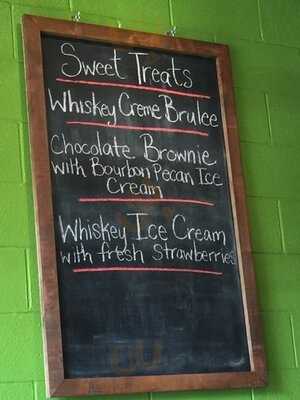 Sweet Treats
Whiskey Creme Brulee
Chocolate Brownie
with Bourbon Pecan Ice
Cream
Whiskey Ice Cream
with fresh Strawberries